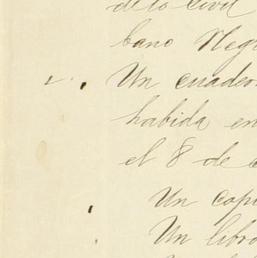 de lo Civil
bano Negr
Un cuader
habida en
el 8 de
Un copi
Un libro